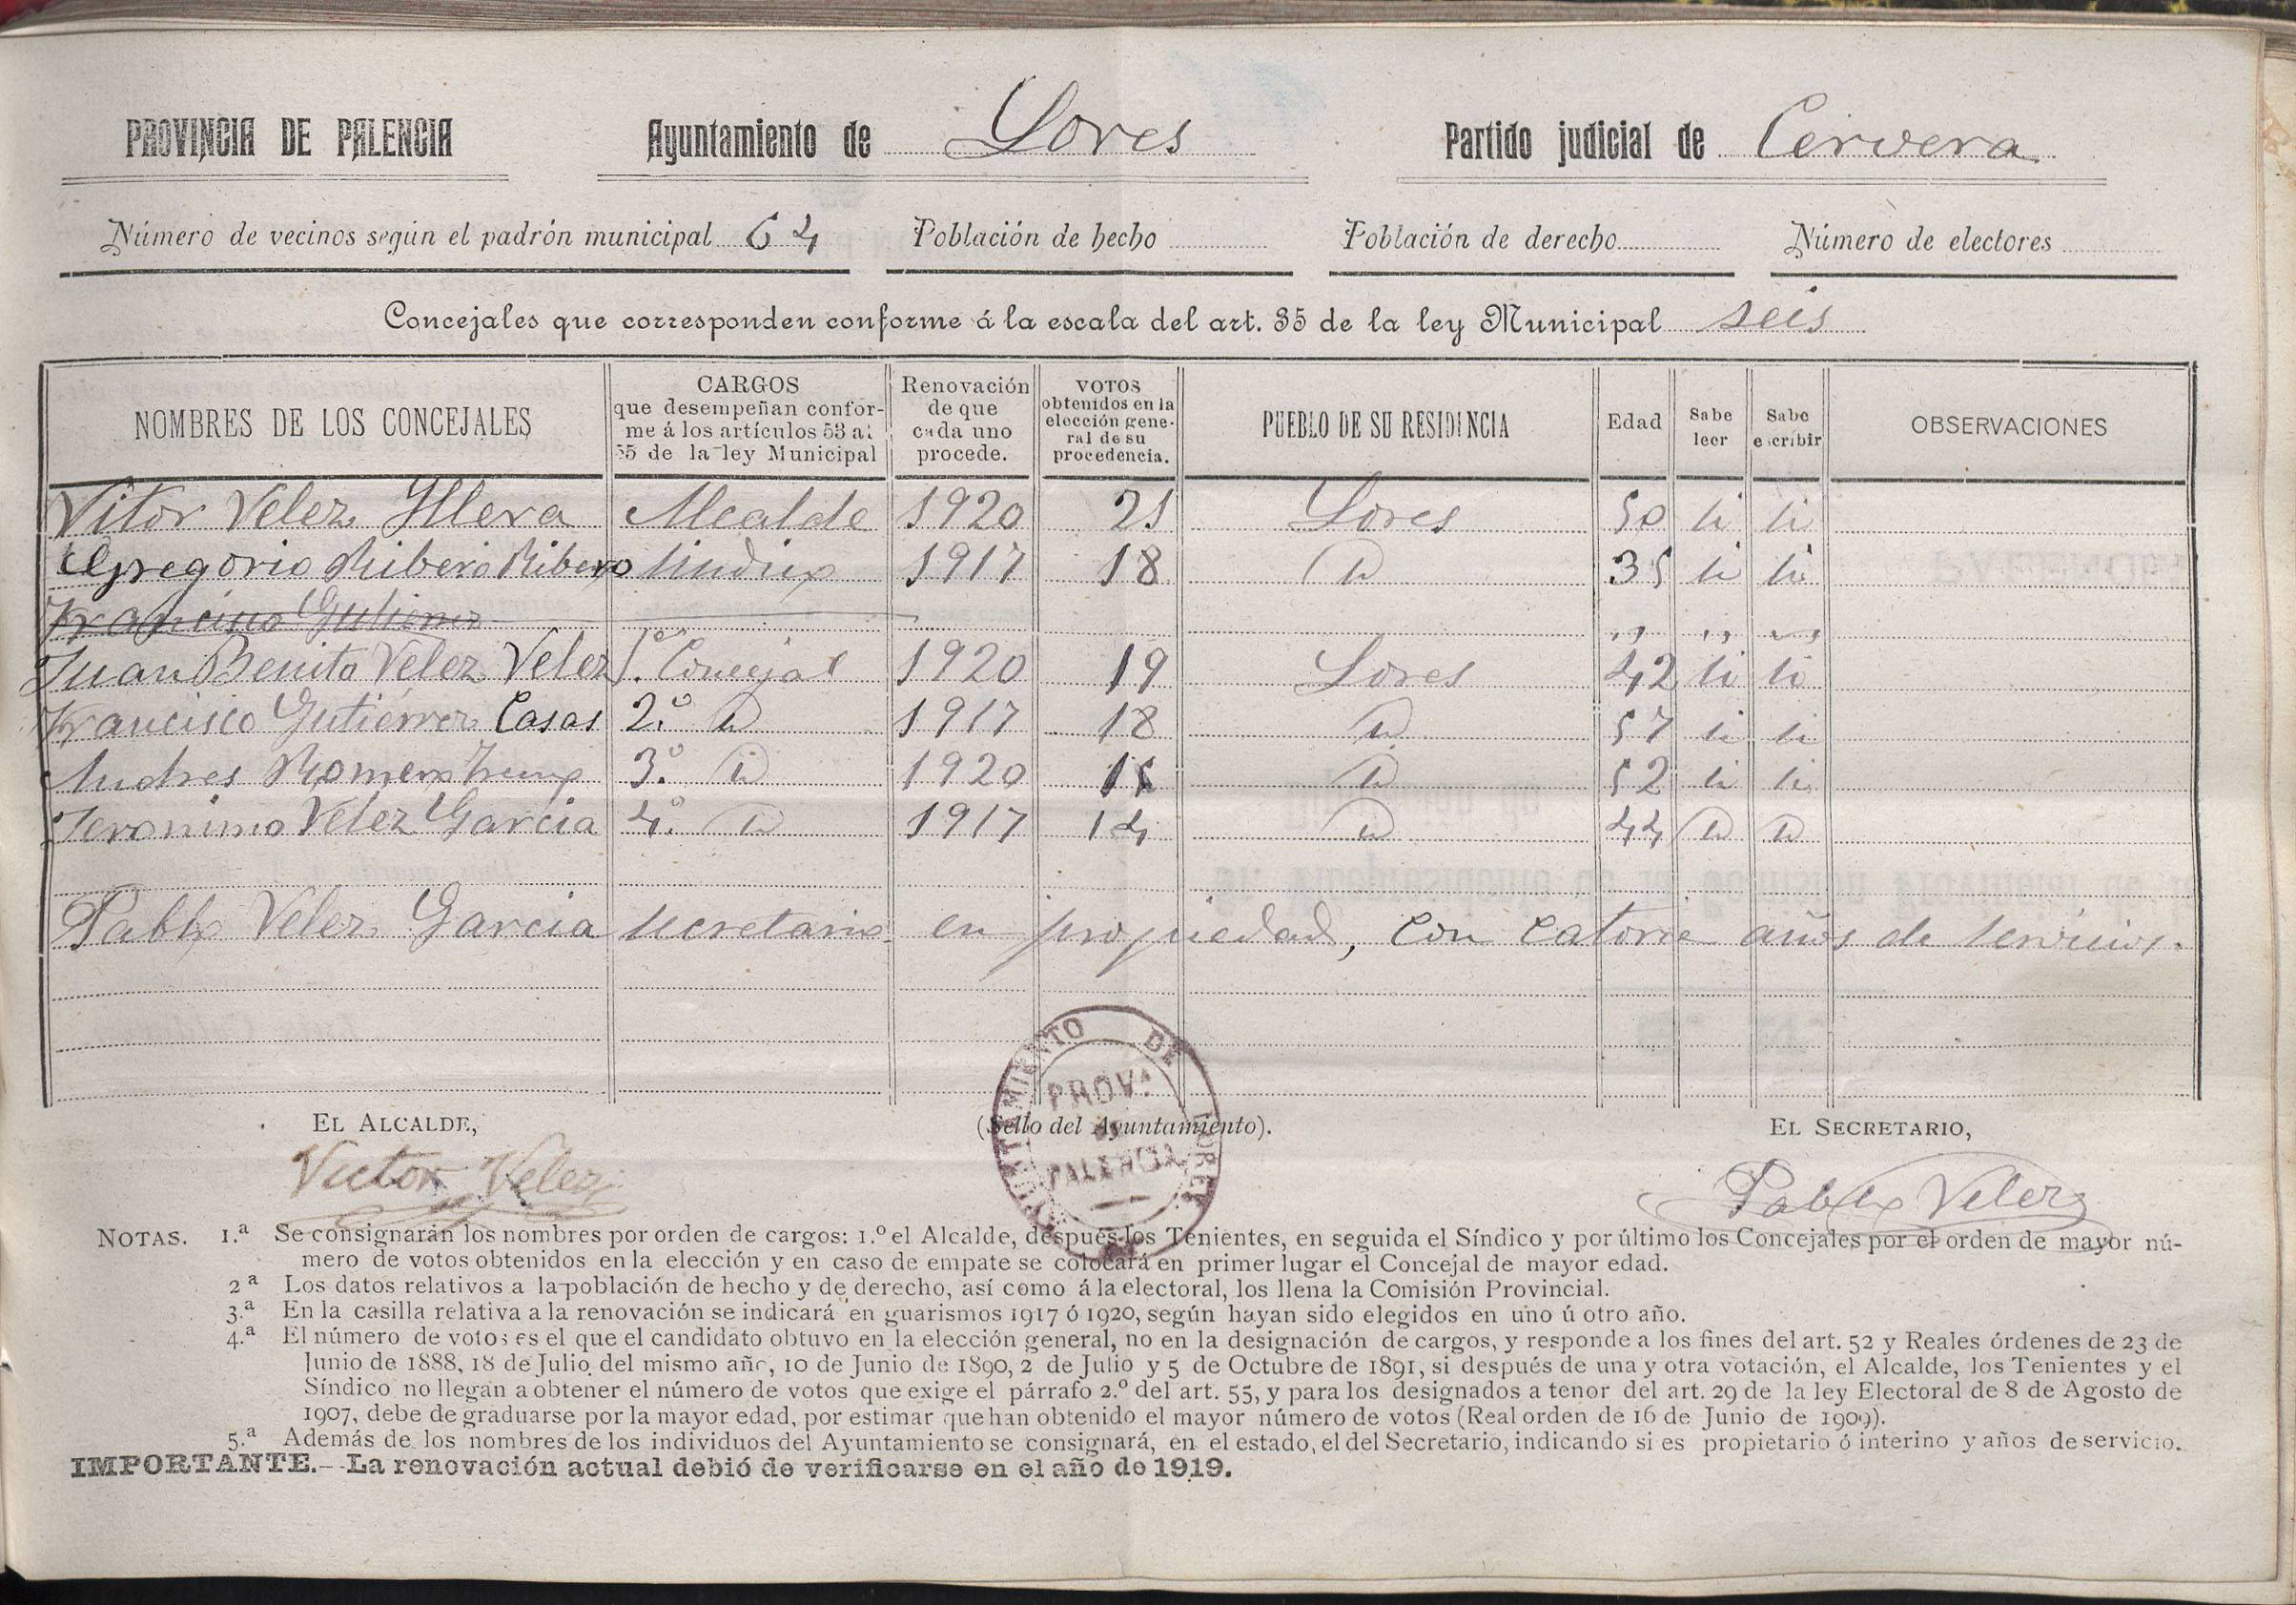 PROVINCIA DE PALENCIA Ayuntamiento de Lores Partido judicial de Cervera
Número de vecinos según el padrón municipal 64 Población de hecho Población de derecho Número de electores
Concejales que corresponden conforme á la escala del art. 35 de la ley Municipal seis
NOMBRES DE LOS CONCEJALES
CARGOS
que desempeñan confor-
me á los artículos 53 al
55 de la ley Municipal
Renovación
de que
cada uno
procede.
VOTOS
obtenidos en la
elección gene-
ral de su
procedencia.
PUEBLO DE SU RESIDENCIA
Edad
Sabe
leer
Sabe
escribir
OBSERVACIONES
Vitor Velez Yllera Alcalde 1920 21 Lores 50 si si
Gregorio Ribero Ribero Sindico 1917 18 Id 35 si si
Francisco Gutierrez " " "
Juan Benito Velez Velez 1.º Concejal 1920 19 Lores 42 si si
Francisco Gutiérrez Casas 2.º Id 1917 18 Id 57 si si
Andres Romero 3.º Id 1920 Id 52 si si
Jeronimo Velez Garcia 4.º Id 1917 14 Id 44 Id Id
Pablo Velez Garcia secretario en propiedad, con catorce años de servicios.
EL ALCALDE,
(Sello del Ayuntamiento).
EL SECRETARIO,
AYUNTAMIENTO DE LORES
PROV.
DE
PALENCIA
Victor Velez
Pablo Velez
NOTAS. 1.ª Se consignarán los nombres por orden de cargos: 1.º el Alcalde, después los Tenientes, en seguida el Síndico y por último los Concejales por el orden de mayor nú-
mero de votos obtenidos en la elección y en caso de empate se colocará en primer lugar el Concejal de mayor edad.
2ª Los datos relativos a la población de hecho y de derecho, así como á la electoral, los llena la Comisión Provincial.
3.ª En la casilla relativa a la renovación se indicará en guarismos 1917 ó 1920, según hayan sido elegidos en uno ú otro año.
4.ª El número de votos es el que el candidato obtuvo en la elección general, no en la designación de cargos, y responde a los fines del art. 52 y Reales órdenes de 23 de
Junio de 1888, 18 de Julio del mismo año, 10 de Junio de 1890, 2 de Julio y 5 de Octubre de 1891, si después de una y otra votación, el Alcalde, los Tenientes y el
Síndico no llegan a obtener el número de votos que exige el párrafo 2.º del art. 55, y para los designados a tenor del art. 29 de la ley Electoral de 8 de Agosto de
1907, debe de graduarse por la mayor edad, por estimar que han obtenido el mayor número de votos (Real orden de 16 de Junio de 1909).
5.ª Además de los nombres de los individuos del Ayuntamiento se consignará, en el estado, el del Secretario, indicando si es propietario ó interino y años de servicio.
IMPORTANTE.--La renovación actual debió de verificarse en el año de 1919.